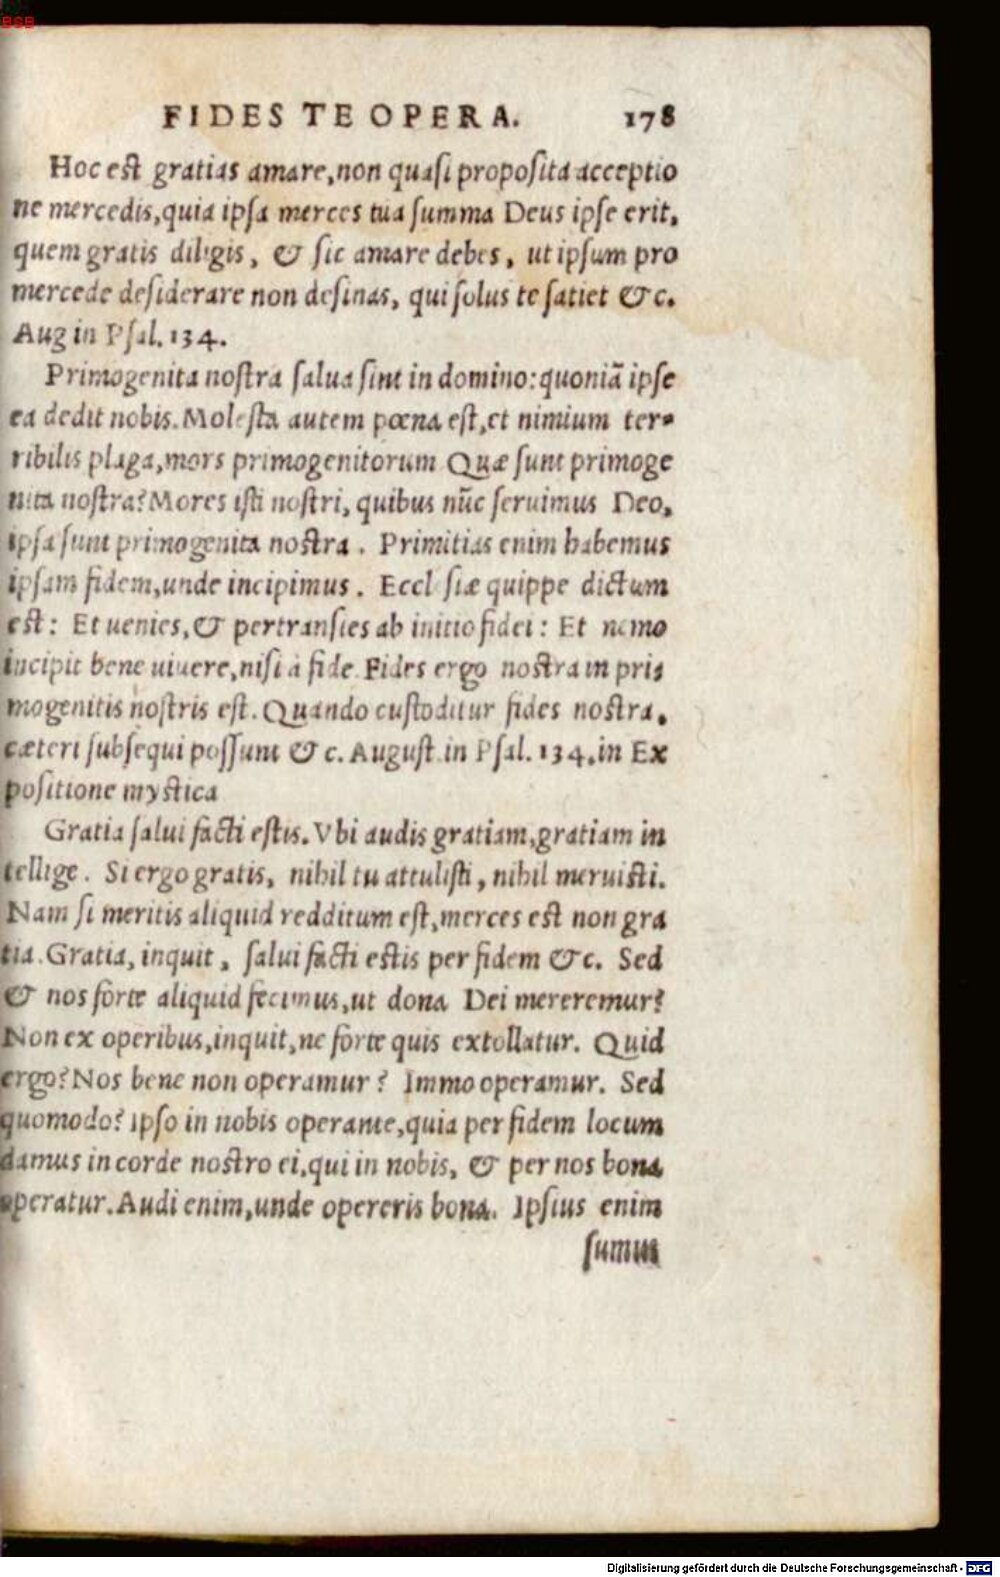 BSB
FIDES TE OPERA. 178
Hoc est gratias amare, non quasi proposita acceptio
ne mercedis, quia ipsa merces tua summa Deus ipse erit,
quem gratis diligis, & sic amare debes, ut ipsum pro
mercede desiderare non desinas, qui solus te satiet &c.
Aug in Psal. 134.
Primogenita nostra salua sint in domino: quoniã ipse
ea dedit nobis. Molesta autem pœna est, et nimium ter-
ribilis plaga, mors primogenitorum Quæ sunt primoge
nita nostra? Mores isti nostri, quibus nũc seruimus Deo,
ipsa sunt primogenita nostra. Primitias enim habemus
ipsam fidem, unde incipimus. Eccl siæ quippe dictum
est: Et uenies, & pertransies ab initio fidei: Et nemo
incipit bene uiuere, nisi à fide. Fides ergo nostra in pri-
mogenitis nostris est. Quando custoditur fides nostra,
cæteri subsequi possunt &c. August in Psal. 134. in Ex
positione mystica
Gratia salui facti estis. Vbi audis gratiam, gratiam in
tellige. Si ergo gratis, nihil tu attulisti, nihil meruisti.
Nam si meritis aliquid redditum est, merces est non gra
tia. Gratia, inquit, salui facti estis per fidem &c. Sed
& nos forte aliquid fecimus, ut dona Dei mereremur?
Non ex operibus, inquit, ne forte quis extollatur. Quid
ergo? Nos bene non operamur? Immo operamur. Sed
quomodo? Ipso in nobis operante, quia per fidem locum
damus in corde nostro ei, qui in nobis, & per nos bona
operatur. Audi enim, unde opereris bona. Ipsius enim
sumus
Digitalisierung gefördert durch die Deutsche Forschungsgemeinschaft - DFG